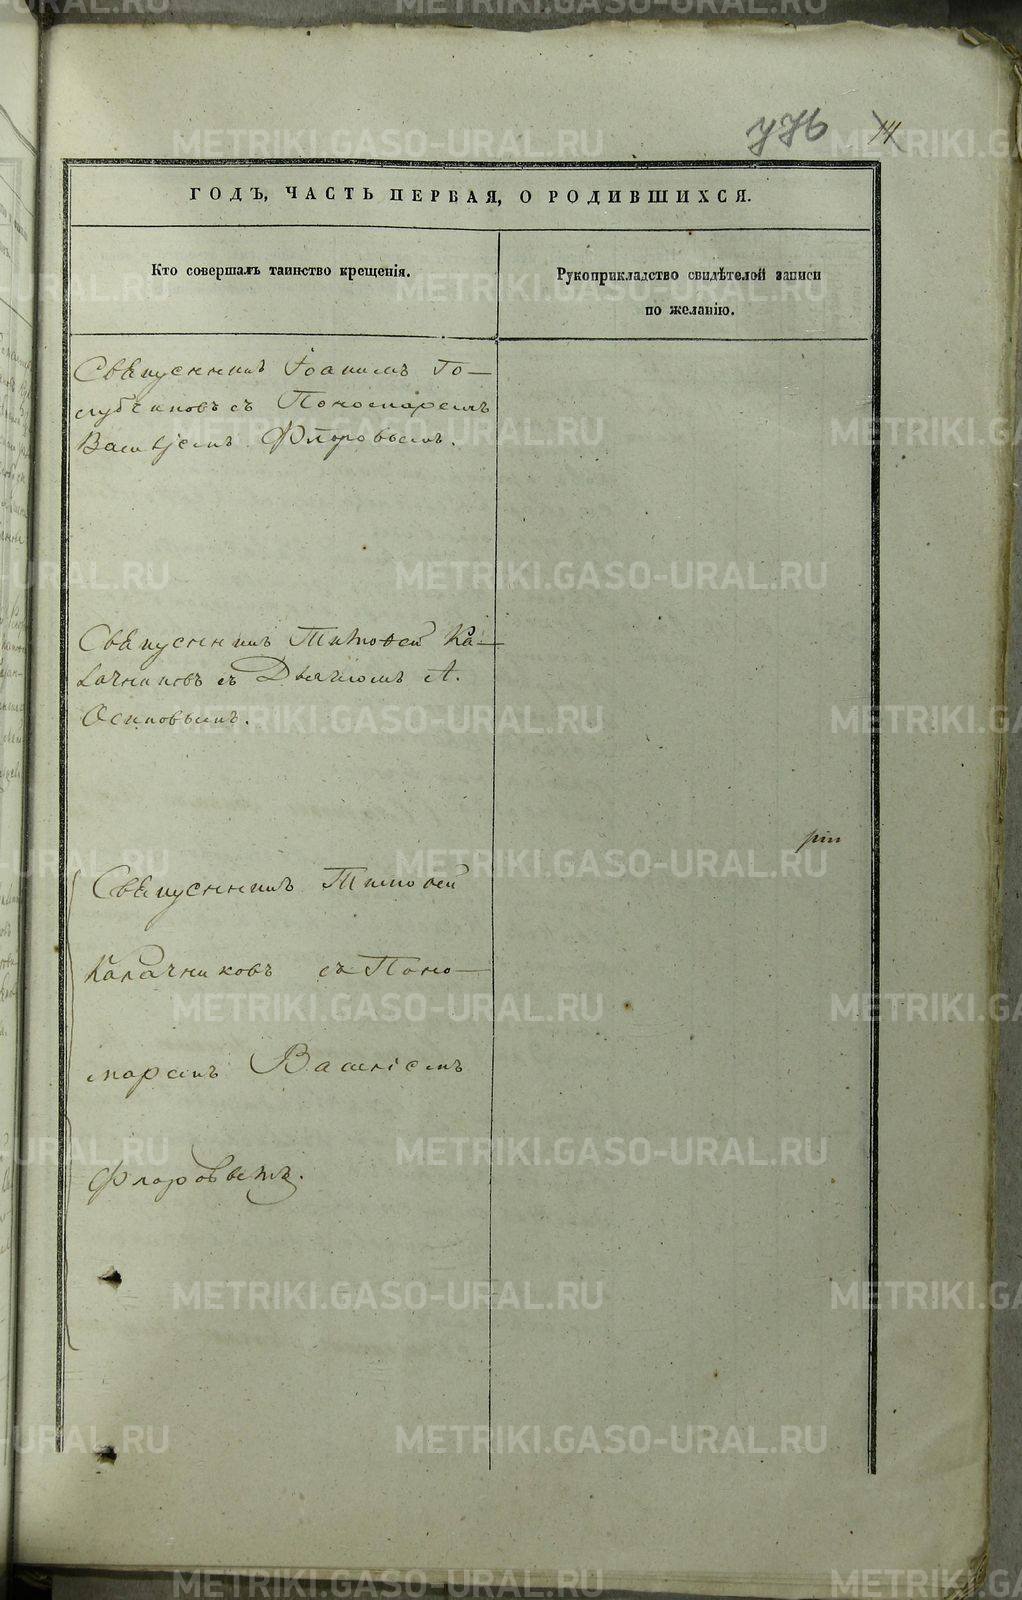 776 14
ГОДЪ, ЧАСТЬ ПЕРВАЯ, О РОДИВШИХСЯ.
Кто совершалъ таинство крещенія.
Рукоприкладство свидѣтелей записи
по желанію.
Свѣщенникъ Іоаннъ Го-
лубчиковъ съ Пономаремъ
Василіемъ Флоровымъ.
Свѣщенникъ Тимофей Ка-
лачниковъ съ Дьячкомъ А.
Осиповымъ.
Свѣщенникъ Тимофей
Калачниковъ съ Поно-
маремъ Василіемъ
Флоровымъ.
METRIKI.GASO-URAL.RU